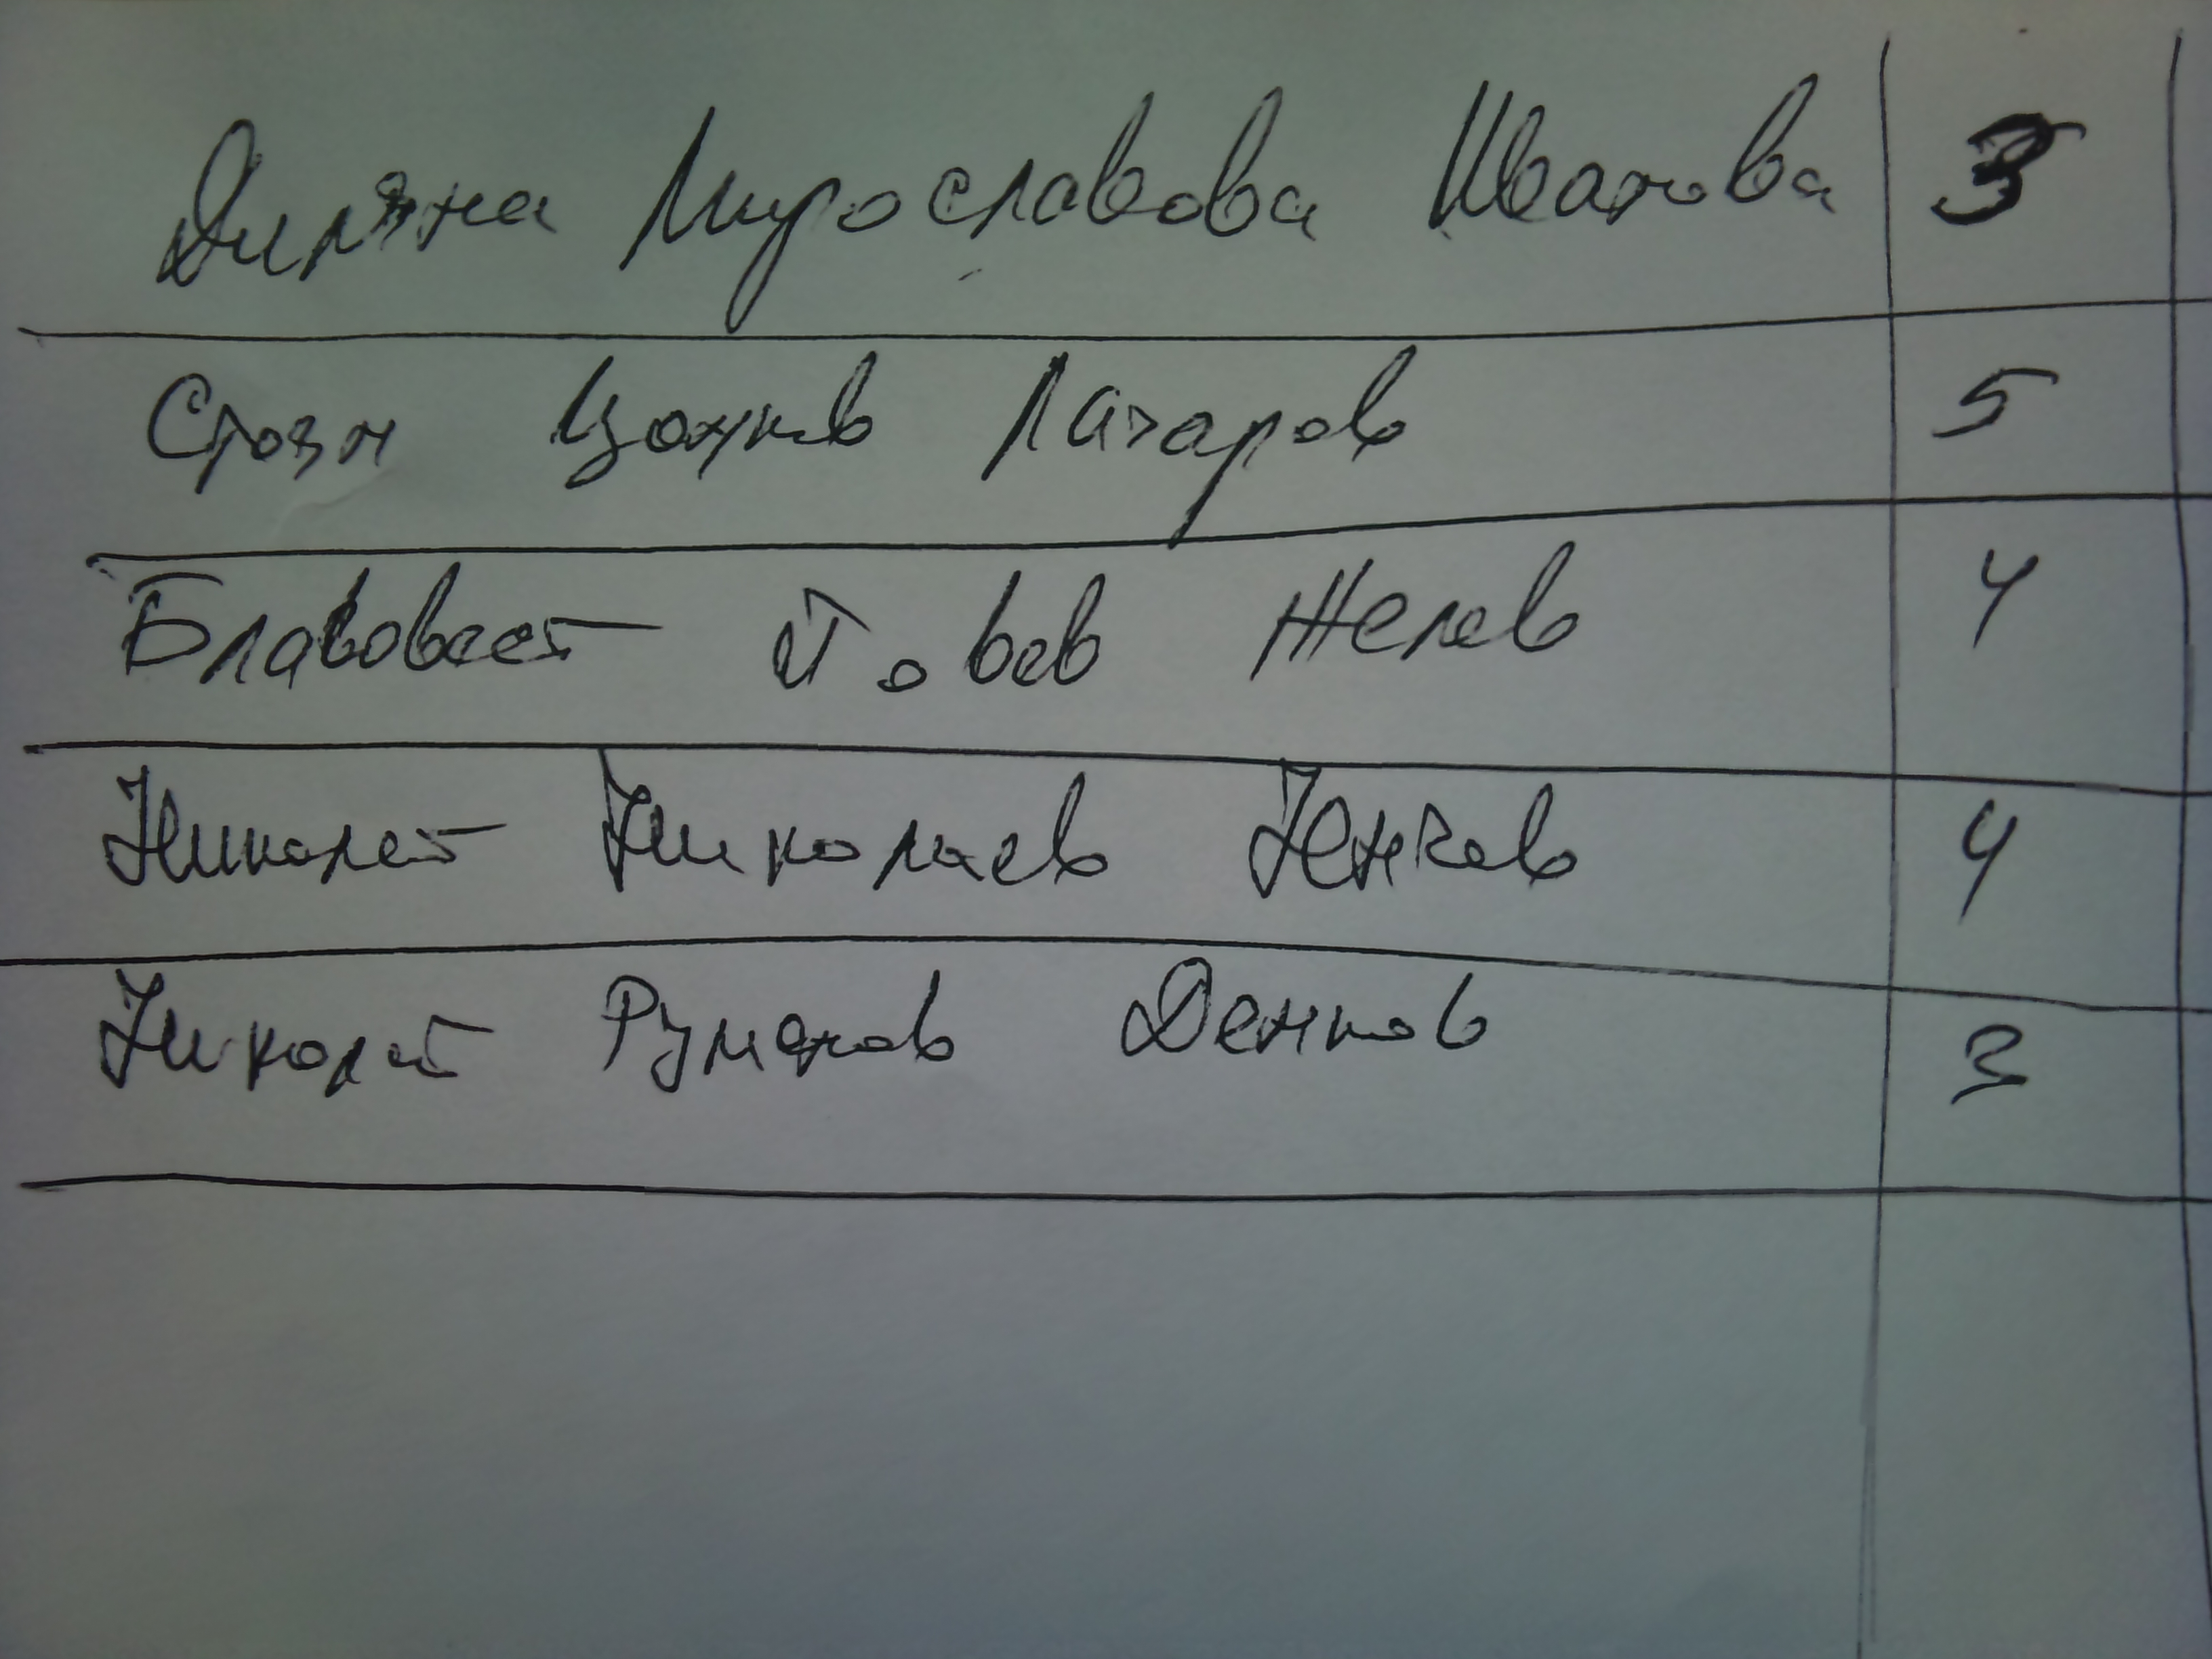 Диляна Мирославова Иванова 3
Стоян Цонков Лазаров 5
Благовест Желев 4
Николай Николаев Ненчев 4
Николай Руменов Денков 3